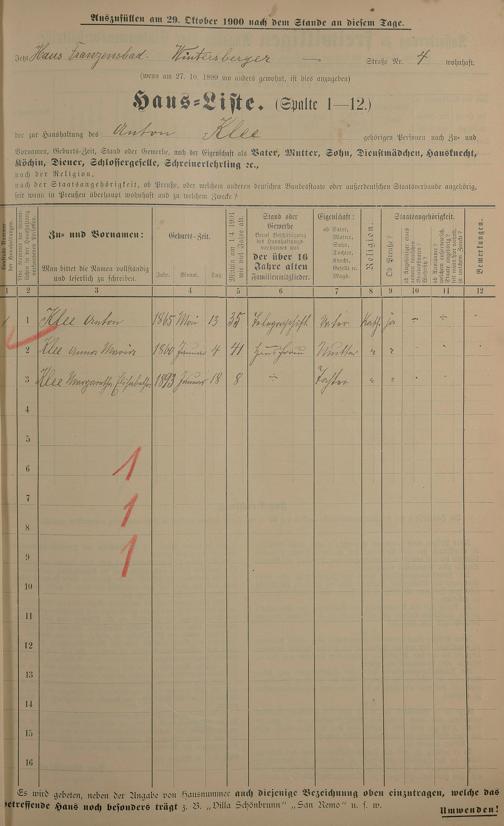 Auszufüllen am 29. Oktober 1900 nach dem Stande an diesem Tage.
Jetzt Haus Franzensbad. Wintersberger — Straße Nr. 4 wohnhaft.
(wenn am 27. 10. 1899 wo anders gewohnt, ist dies anzugeben)
Haus-Liste. (Spalte 1—12.)
der zur Haushaltung des Anton Klee gehörigen Personen nach Zu- und
Vornamen, Geburts-Zeit, Stand oder Gewerbe, nach der Eigenschaft als Vater, Mutter, Sohn, Dienstmädchen, Hausknecht,
Köchin, Diener, Schlossergeselle, Schreinerlehrling ꝛc.,
nach der Religion,
nach der Staatsangehörigkeit, ob Preuße, oder welchem anderen deutschen Bundesstaate oder außerdeutschen Staatsverbande angehörig,
seit wann in Preußen überhaupt wohnhaft und zu welchem Zwecke?
Zu- und Vornamen:
Man bittet die Namen vollständig
und leserlich zu schreiben.
Geburts-Zeit.
Jahr. Monat. Tag.
Stand oder
Gewerbe
der über 16
Jahre alten
Familienmitglieder.
Eigenschaft:
ob Vater,
Mutter,
Sohn,
Tochter,
Knecht,
Gesell u.
Magd.
Religion.
Staatsangehörigkeit.
Ob Preuße?
Bemerkungen.
1 2 3 4 5 6 7 8 9 10 11 12
1 Klee Anton 1865 Mai 13 35 Vater Kath. ja
2 Klee Anna Maria 1860 Januar 4 41 Hausfrau Mutter " "
3 Klee Margaretha Elisabetha 1893 Januar 18 8 Tochter " "
4
5
6 1
7 1
8
9 1
10
11
12
13
14
15
16
Es wird gebeten, neben der Angabe von Hausnummer auch diejenige Bezeichnung oben einzutragen, welche das
betreffende Haus noch besonders trägt z. B. „Villa Schönbrunn" „San Remo" u. s. w.
Umwenden!